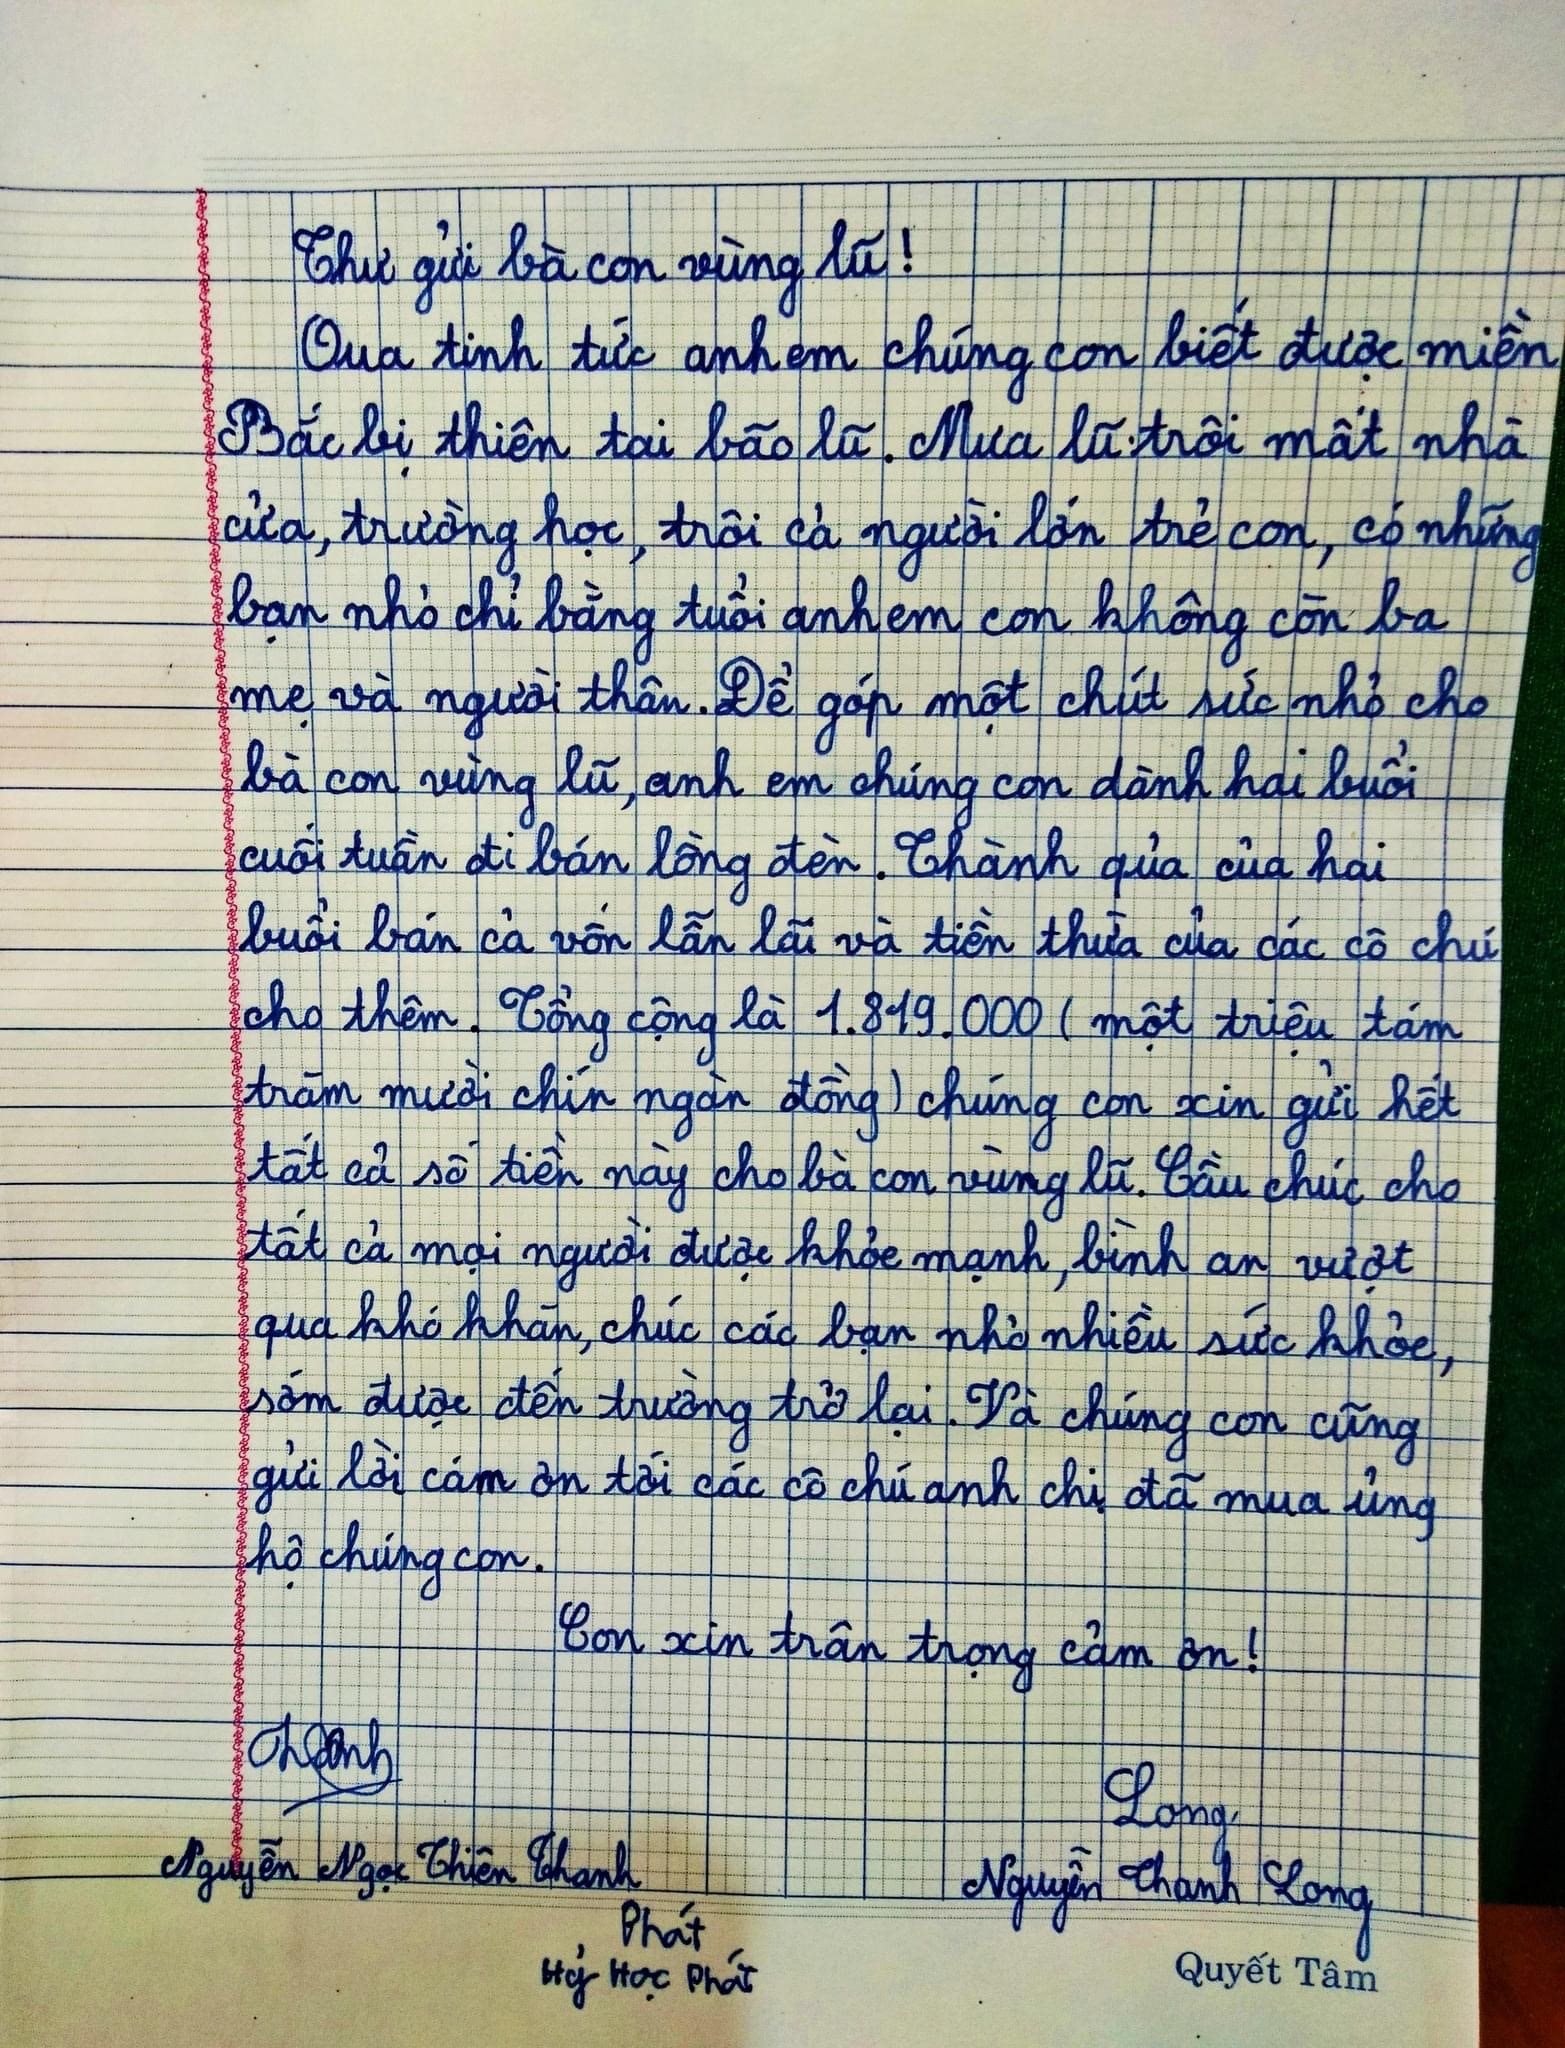 Thư gửi bà con vùng lũ!
Qua tinh tức anh em chúng con biết được miền
Bắc bị thiên tai bão lũ. Mưa lũ trôi mất nhà
cửa, trường học, trôi cả người lớn trẻ con, có những
bạn nhỏ chỉ bằng tuổi anh em con không còn ba
mẹ và người thân. Để góp một chút sức nhỏ cho
bà con vùng lũ, anh em chúng con dành hai buổi
cuối tuần đi bán lồng đèn. Thành qủa của hai
buổi bán cả vốn lẫn lãi và tiền thừa của các cô chú
cho thêm. Tổng cộng là 1.819.000 ( một triệu tám
trăm mười chín ngàn đồng) chúng con xin gửi hết
tất cả số tiền này cho bà con vùng lũ. Cầu chúc cho
tất cả mọi người được khỏe mạnh, bình an vượt
qua khó khăn, chúc các bạn nhỏ nhiều sức khỏe,
sớm được đến trường trở lại. Và chúng con cũng
gửi lời cám ơn tới các cô chú anh chị đã mua ủng
hộ chúng con.
Con xin trân trọng cảm ơn!
Thanh
Long
Nguyễn Ngọc Thiên Thanh
Nguyễn Thanh Long
Phát
Học Phát
Quyết Tâm